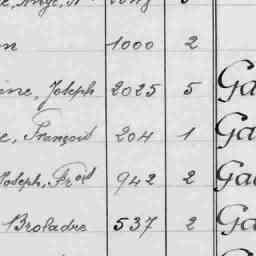 1000 2
Joseph 2025 5 Ga
François 204 1 Ga
Joseph, Frois 942 2 Ga
Broladre 537 2 Ga